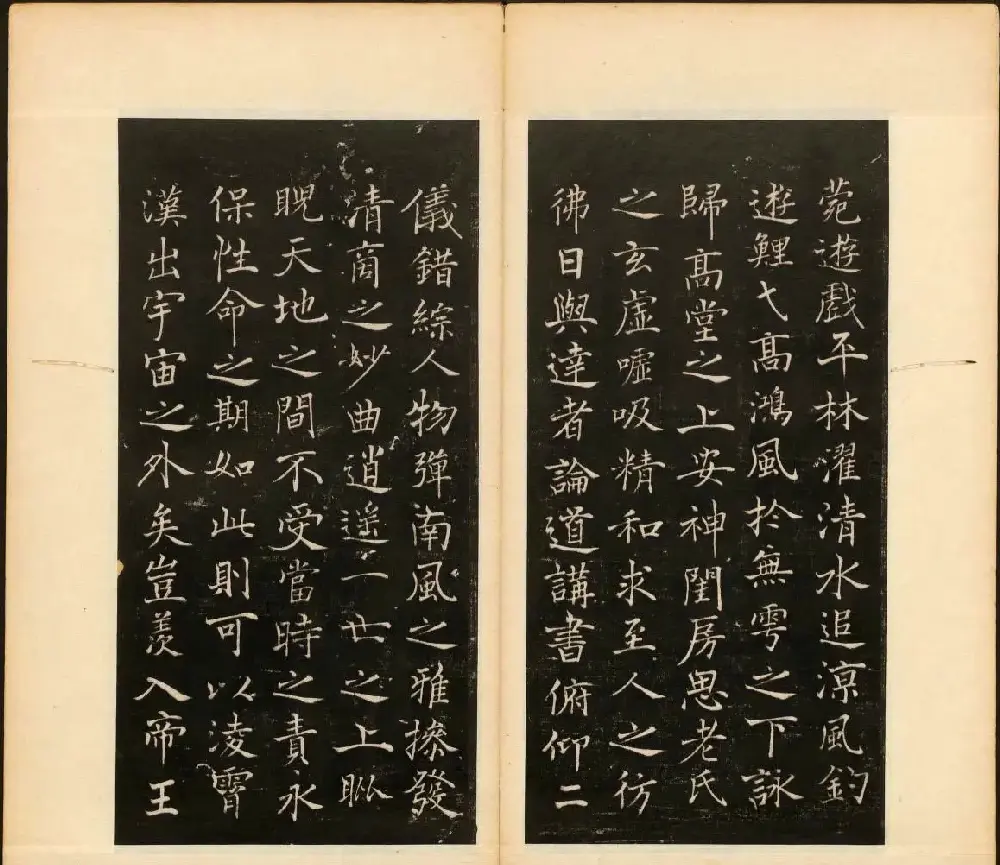 菀遊戲平林濯清水追涼風釣
遊鯉弋髙鴻風於無雩之下詠
歸髙堂之上安神閨房思老氏
之玄虛噓吸精和求至人之彷
彿日與達者論道講書俯仰二
儀錯綜人物彈南風之雅操發
清商之妙曲逍遙一世之上睥
睨天地之間不受當時之責永
保性命之期如此則可以淩霄
漢出宇宙之外矣豈羨入帝王